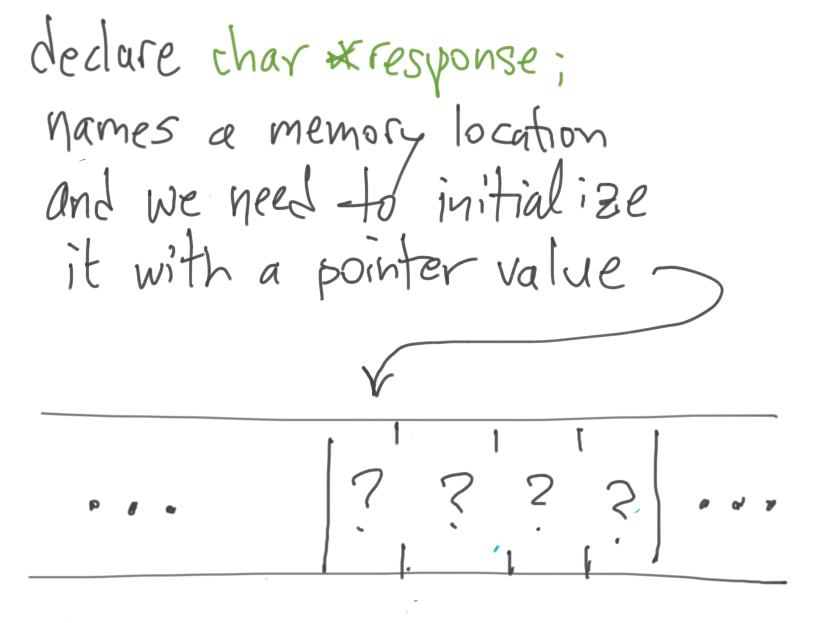 declare char *response;
names a memory location
and we need to initialize
it with a pointer value
... ? ? ? ? ...